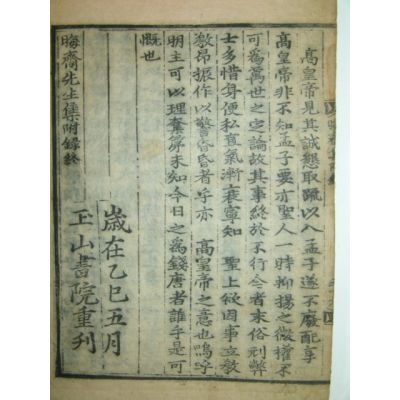 高皇帝見其誠懇取疏以入孟子遂不廢配享
高皇帝非不知孟子要亦聖人一時抑揚之微權不
可爲萬世之定論故其事終於不行今者末俗刓弊
士多惜身便私直氣漸衰寧知 聖上因事立敎
激昂振作以警昏昏者乎亦 高皇帝之意也嗚呼
明主可以理奪第未知今日之爲錢唐者誰乎是可
慨也
晦齋先生集附錄終
歲在乙巳五月
玉山書院重刊